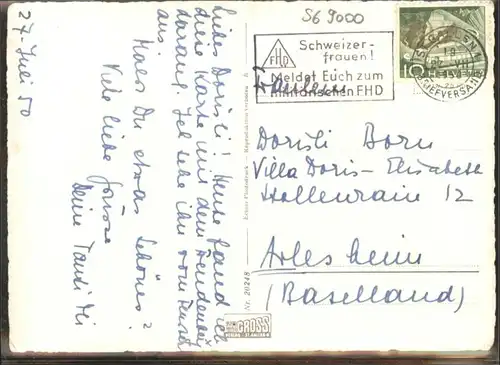 27. Juli 50
Liebe Dorisli! Heute fand ich
diese Karte mit dem
darauf. Ich sehe ihn vom
aus.
Hast Du etwas Schönes?
Viele liebe Grüsse
Deine Tanti
S6 9000
FHD
Schweizer-
frauen!
Meldet Euch zum
militärischen FHD
ST. GALLEN
BRIEFVERSAND
10
Fräulein
Dorisli Born
Villa Doris-Elisabeth
12
Arlesheim
(Baselland)
Nr. 20248
GROSS